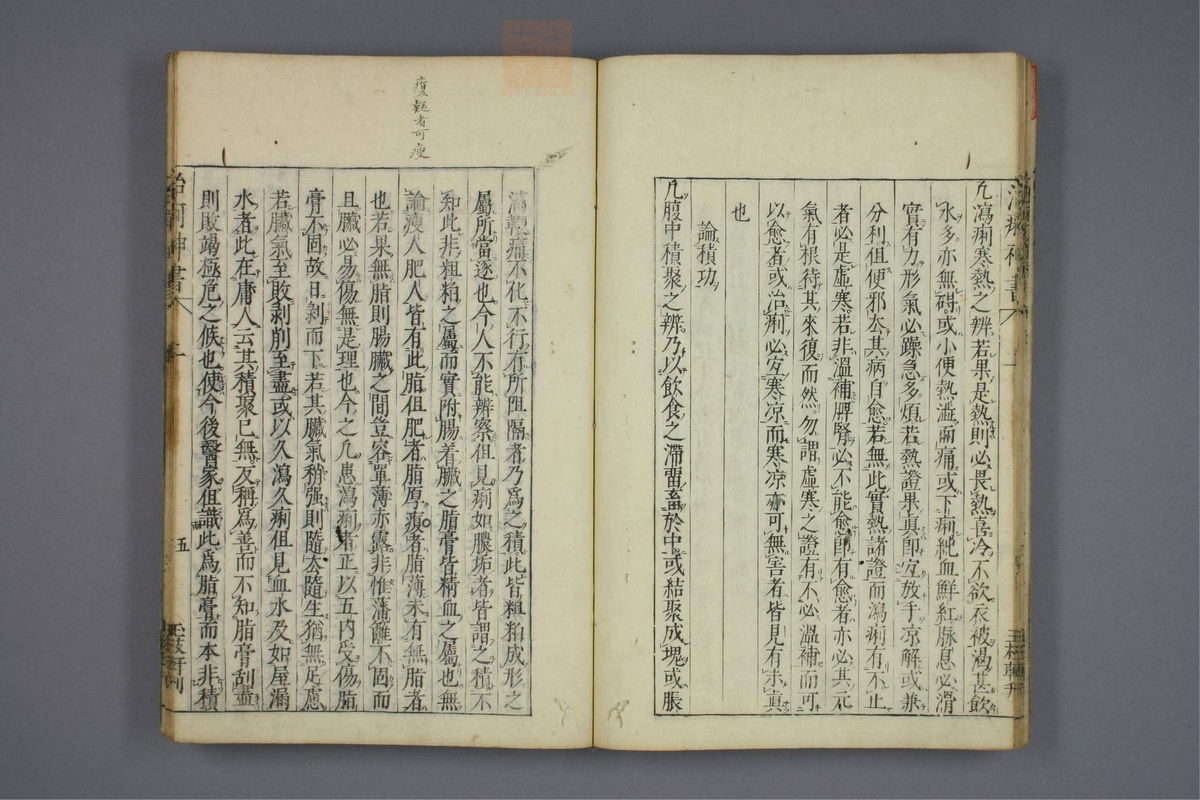 凡瀉痢寒熱之辨若果是熱則必畏熱喜冷不欲衣被渴甚飲
水多亦無碍或小便熱澁而痛或下痢純血鮮紅脉息必滑
實有力形氣必躁急多煩若熱證果真即宜放手凉解或兼
分利但使邪去其病自愈若無此實熱諸證而瀉痢有不止
者必是虛寒若非溫補脾腎必不能愈即有愈者亦必其元
氣有根待其來復而然勿謂虛寒之證有不必溫補而可
以愈者或治痢必宜寒凉而寒凉亦可無害者皆見有未真
也
論積功
凡腹中積聚之辨乃以飲食之滯畱畜於中或結聚成塊或脹
滿鞕痛不化不行有所阻隔者乃爲之積此皆粗粕成形之
屬所當逐也今人不能辨察但見痢如膿垢者皆謂之積不
知此非粗粕之屬而實附腸着臟之脂膏皆精血之屬也無
論瘦人肥人皆有此脂但肥者脂厚瘦者脂薄未有無脂者
也若果無脂則腸臟之間豈容單薄赤露非惟藩籬不固而
且臟必易傷無是理也今之凡患瀉痢者正以五内受傷脂
膏不固故日剥而下若其臟氣稍强則隨去隨生猶無足慮
若臟氣至敗剥削至盡或以久瀉久痢但見血水及如屋漏
水者此在庸人云其積聚已無反稱爲善而不知脂膏刮盡
則敗竭極危之候也使今後醫家但識此爲脂膏而本非積
治痢神書
五
瘦疑者可瘦